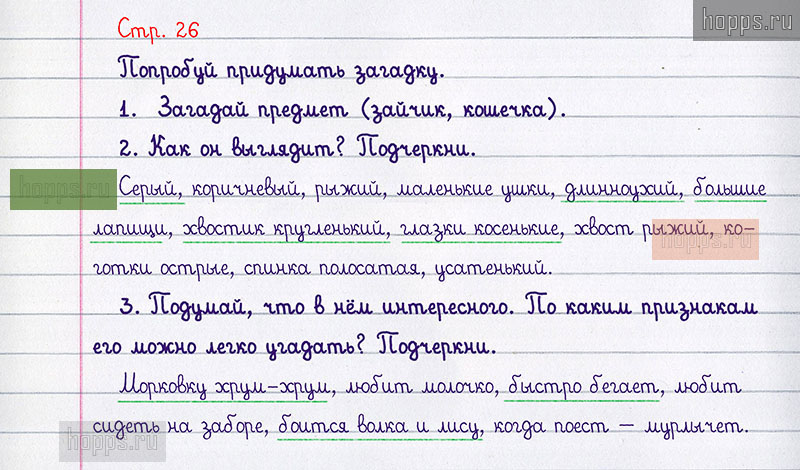 Стр. 26
hopps.ru
Попробуй придумать загадку.
1. Загадай предмет (зайчик, кошечка).
2. Как он выглядит? Подчеркни.
hopps.ru
Серый, коричневый, рыжий, маленькие ушки, длинноухий, большие
лапищи, хвостик кругленький, глазки косенькие, хвост рыжий, ко-
hopps.ru
готки острые, спинка полосатая, усатенький.
3. Подумай, что в нём интересного. По каким признакам
его можно легко угадать? Подчеркни.
Морковку хрум-хрум, любит молочко, быстро бегает, любит
сидеть на заборе, боится волка и лису, когда поест — мурлычет.
hopps.ru